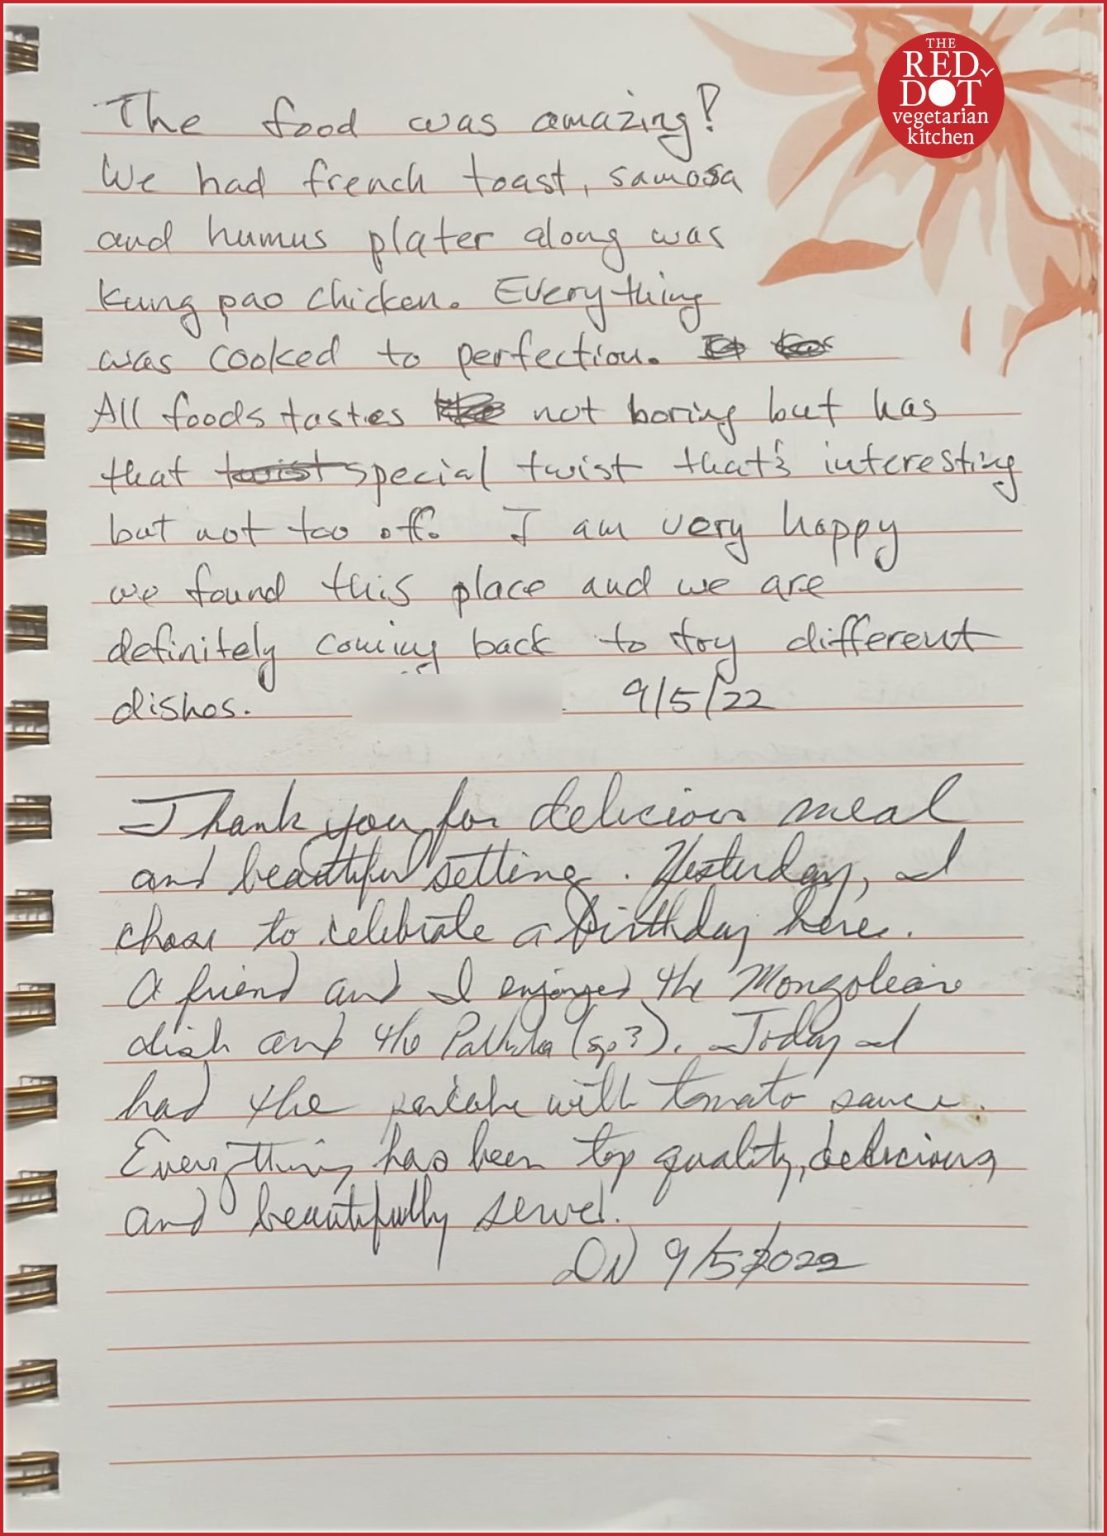 THE
RED
DOT
vegetarian
kitchen
The food was amazing!
We had french toast, samosa
and humus plater along was
kung pao chicken. Everything
was cooked to perfection.
All foods tasties not boring but has
that twist special twist that's interesting
but not too off. I am very happy
we found this place and we are
definitely coming back to try different
dishes. 9/5/22
Thank you for delicious meal
and beautiful setting. Yesterday, I
chose to celebrate a birthday here.
A friend and I enjoyed the Mongolean
dish and the (sp?). Today I
had the with tomato sauce.
Everything has been top quality, delicious,
and beautifully served.
DN 9/5/2022